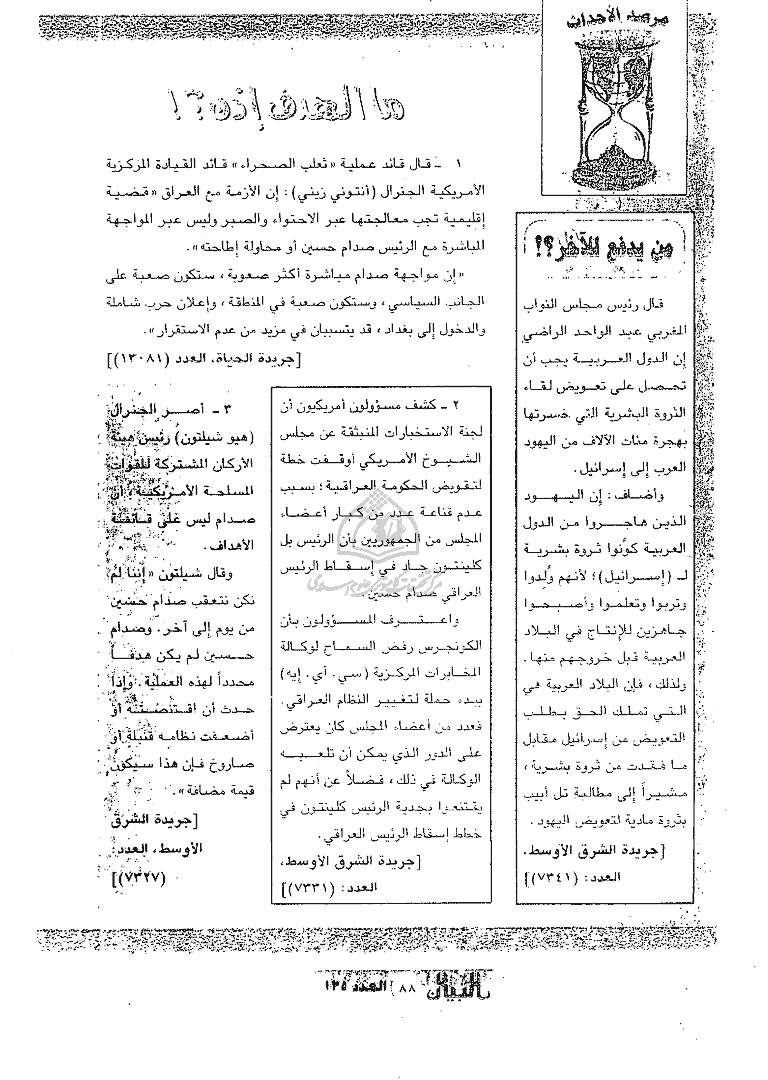 مرصد الأحداث
ما الهدف إذن؟!
١ ـ قال قائد عملية «ثعلب الصحراء» قائد القيادة المركزية
الأمريكية الجنرال (أنتوني زيني) : إن الأزمة مع العراق «قضية
إقليمية تجب معالجتها عبر الاحتواء والصبر وليس عبر المواجهة
المباشرة مع الرئيس صدام حسين أو محاولة إطاحته» .
«إن مواجهة صدام مباشرة أكثر صعوبة ، ستكون صعبة على
الجانب السياسي ، وستكون صعبة في المنطقة ، وإعلان حرب شاملة
والدخول إلى بغداد ، قد يتسببان في مزيد من عدم الاستقرار» .
[جريدة الحياة، العدد (١٣٠٨١)]
٢ ـ كشف مسؤولون أمريكيون أن
لجنة الاستخبارات المنبثقة عن مجلس
الشيوخ الأمريكي أوقفت خطة
لتقويض الحكومة العراقية ؛ بسبب
عدم قناعة عدد من كبار أعضاء
المجلس من الجمهوريين بأن الرئيس بل
كلينتون جاد في إسقاط الرئيس
العراقي صدام حسين .
واعترف المسؤولون بأن
الكونجرس رفض السماح لوكالة
المخابرات المركزية (سي . آي . إيه)
ببدء حملة لتغيير النظام العراقي .
فعدد من أعضاء المجلس كان يعترض
على الدور الذي يمكن أن تلعبه
الوكالة في ذلك ، فضلاً عن أنهم لم
يقتنعوا بجدية الرئيس كلينتون في
خطط إسقاط الرئيس العراقي .
[جريدة الشرق الأوسط،
العدد: (٧٣٣١)]
٣ ـ أصر الجنرال
(هيو شيلتون) رئيس هيئة
الأركان المشتركة للقوات
المسلحة الأمريكية ، أن
صدام ليس على قائمة
الأهداف .
وقال شيلتون «إننا لم
نكن نتعقب صدام حسين
من يوم إلى آخر . وصدام
حسين لم يكن هدفاً
محدداً لهذه العملية . وإذا
حدث أن اقتنصته أو
أضعفت نظامه قنبلة أو
صاروخ فإن هذا سيكون
قيمة مضافة» .
[جريدة الشرق
الأوسط، العدد:
(٧٣٢٧)]
من يدفع للآخر؟؟!
قال رئيس مجلس النواب
المغربي عبد الواحد الراضي
إن الدول العربية يجب أن
تحصل على تعويض لقاء
الثروة البشرية التي خسرتها
بهجرة مئات الآلاف من اليهود
العرب إلى إسرائيل .
وأضاف : إن اليهود
الذين هاجروا من الدول
العربية كوّنوا ثروة بشرية
لـ (إسرائيل) ؛ لأنهم وُلدوا
وتربوا وتعلموا وأصبحوا
جاهزين للإنتاج في البلاد
العربية قبل خروجهم منها .
ولذلك ، فإن البلاد العربية هي
التي تملك الحق بطلب
التعويض من إسرائيل مقابل
ما فقدت من ثروة بشرية ،
مشيراً إلى مطالبة تل أبيب
بثروة مادية لتعويض اليهود .
[جريدة الشرق الأوسط،
العدد: (٧٣٤١)]
البيان ٨٨ / العدد ١٣٥